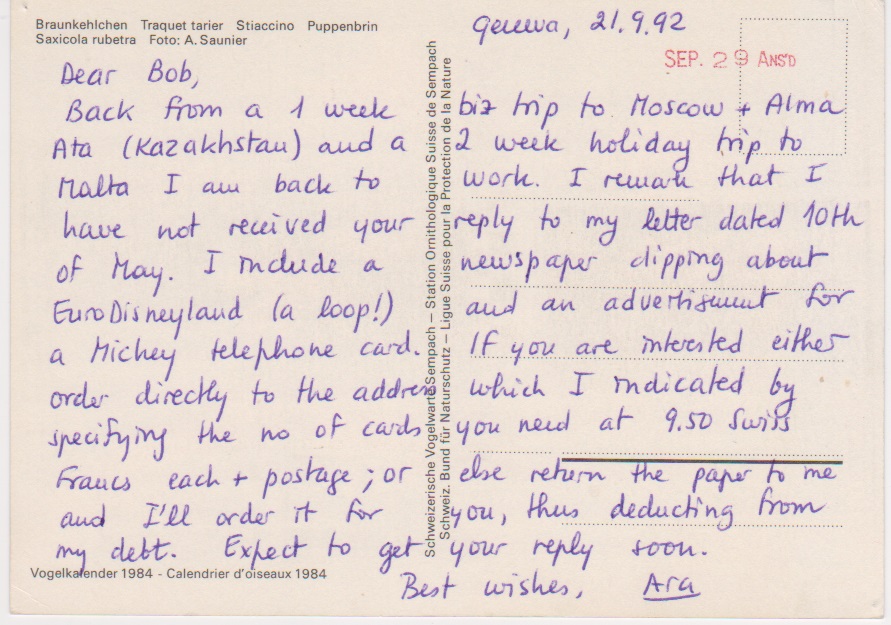 Braunkehlchen Traquet tarier Stiaccino Puppenbrin
Saxicola rubetra Foto: A. Saunier
Geneva, 21.9.92
SEP. 29 ANS'D
Dear Bob,
Back from a 1 week biz trip to Moscow + Alma
Ata (Kazakhstan) and a 2 week holiday trip to
Malta I am back to work. I remain that I
have not received your reply to my letter dated 10th
of May. I include a newspaper clipping about
EuroDisneyland (a loop!) and an advertisment for
a Mickey telephone card. If you are interested either
order directly to the address which I indicated by
specifying the no of cards you need at 9.50 Swiss
Francs each + postage; or else return the paper to me
and I'll order it for you, thus deducting from
my debt. Expect to get your reply soon.
Best wishes, Ara
Schweizerische Vogelwarte Sempach – Station Ornithologique Suisse de Sempach
Schweiz. Bund für Naturschutz – Ligue Suisse pour la Protection de la Nature
Vogelkalender 1984 - Calendrier d'oiseaux 1984